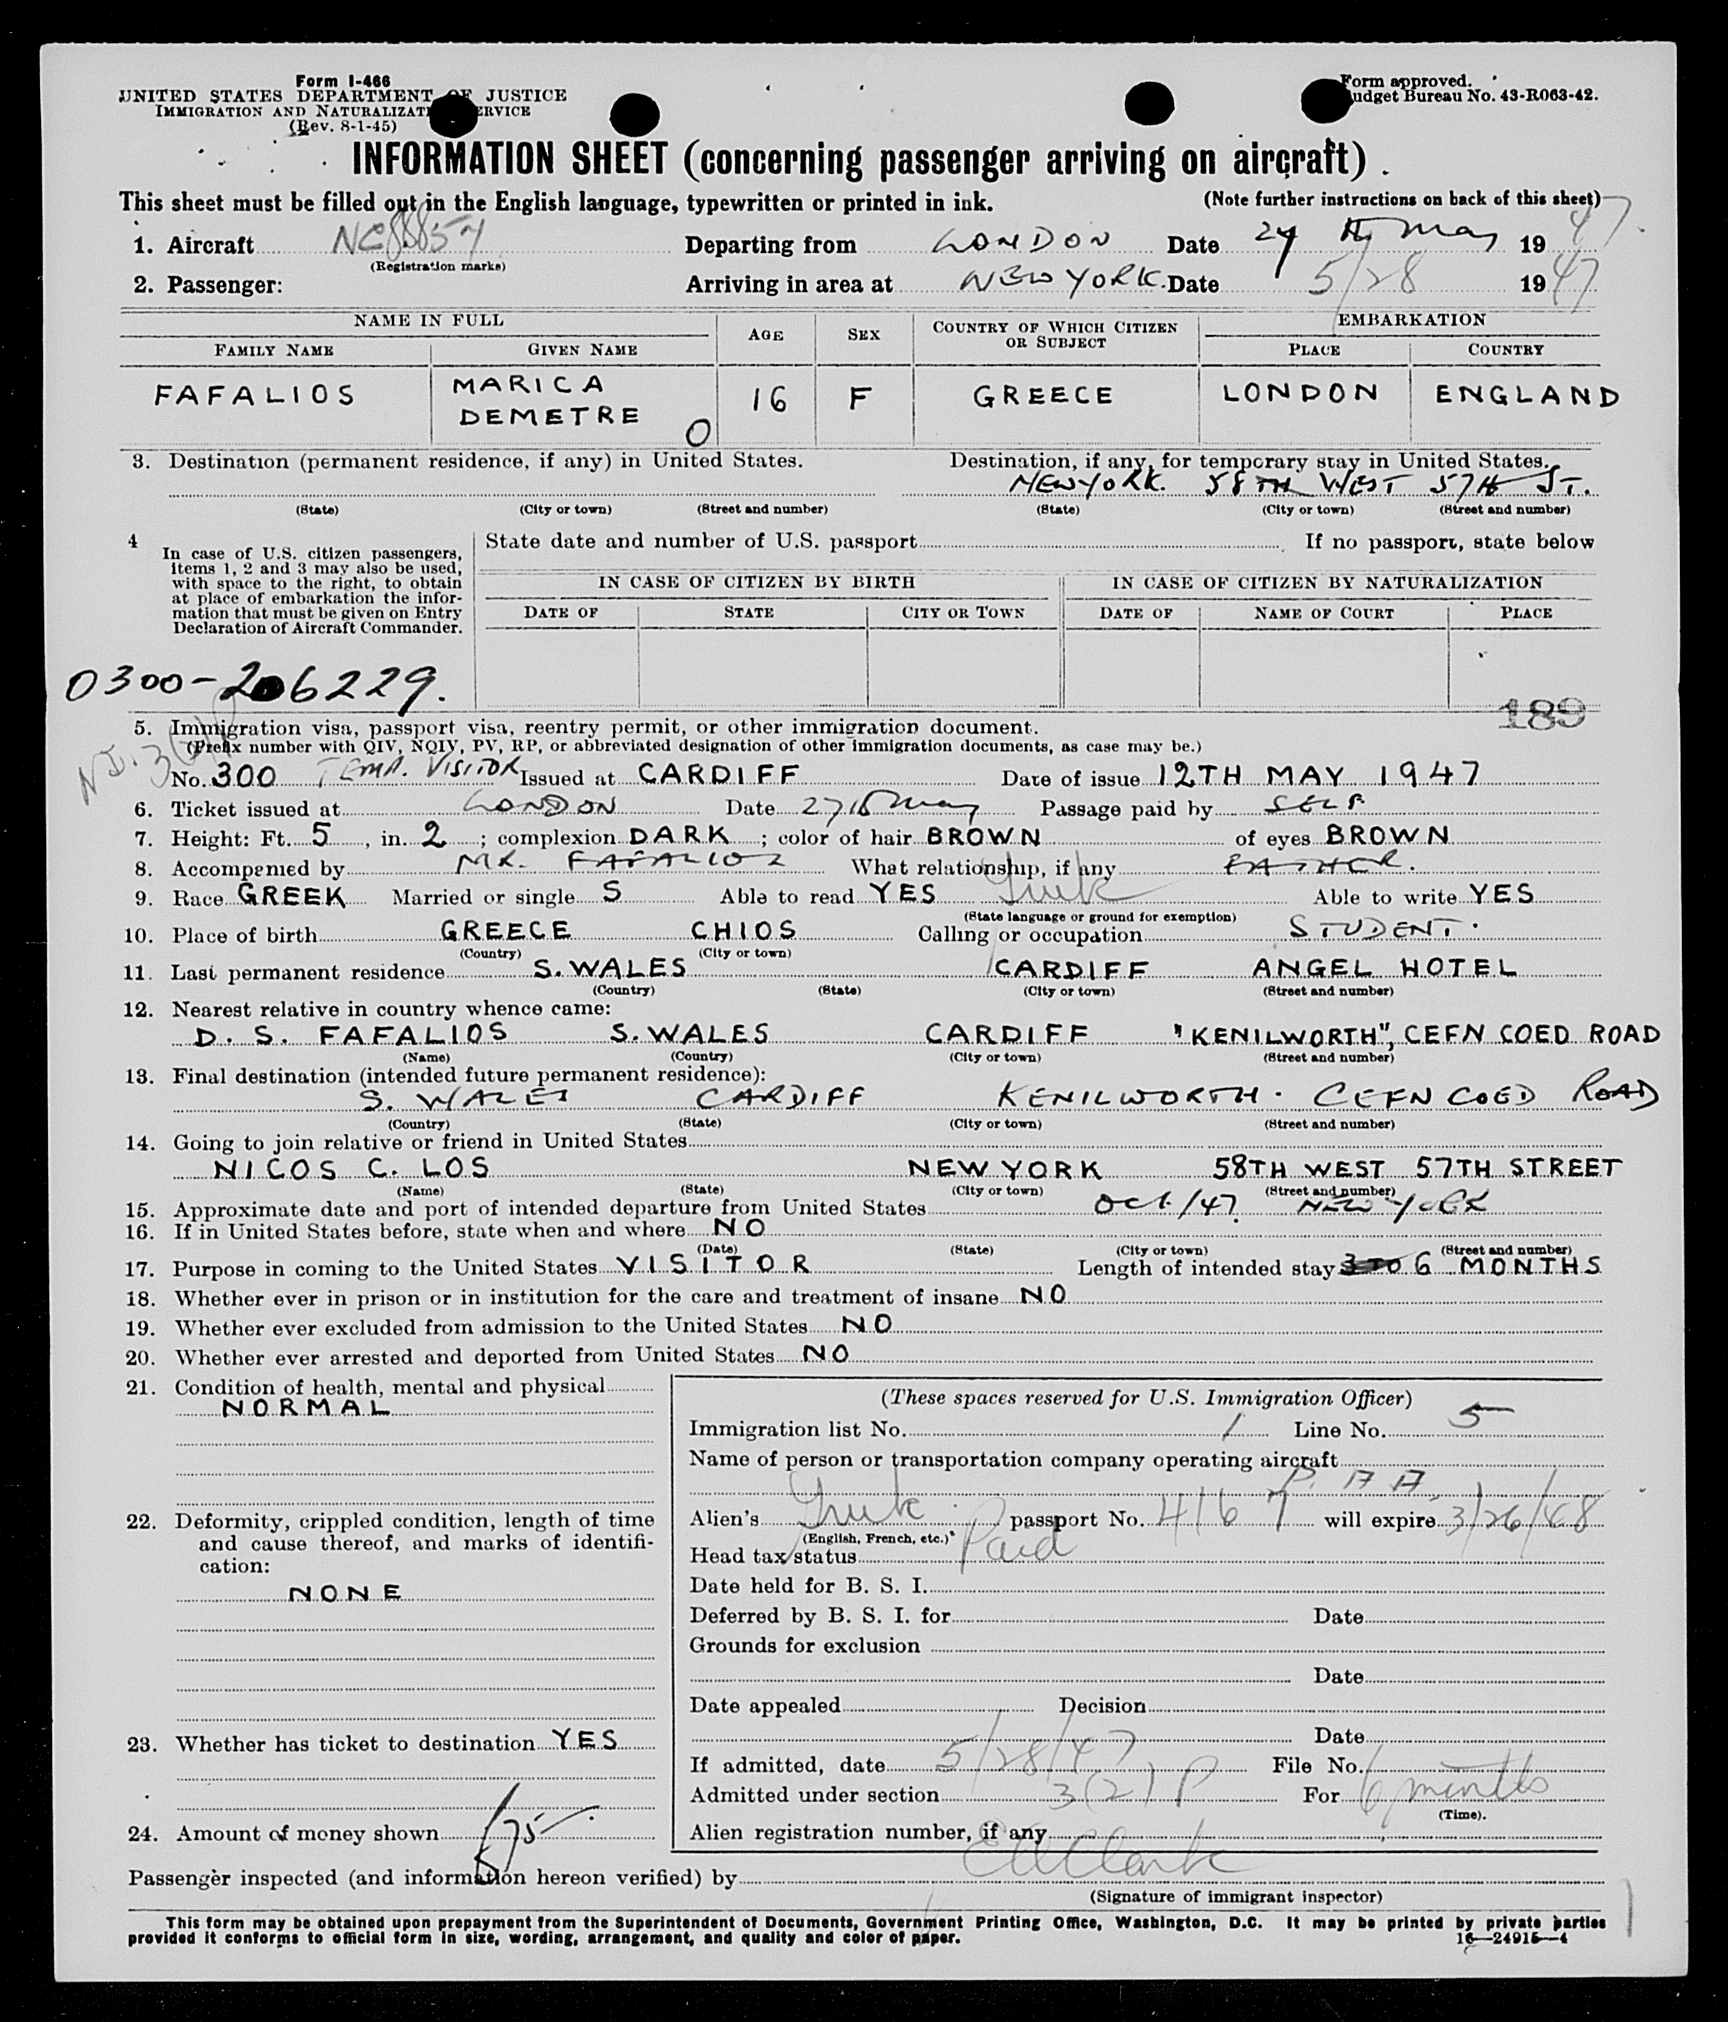 Form I-466
UNITED STATES DEPARTMENT OF JUSTICE
IMMIGRATION AND NATURALIZATION SERVICE
(Rev. 8-1-45)
Form approved.
Budget Bureau No. 43-R063-42.
INFORMATION SHEET (concerning passenger arriving on aircraft)
This sheet must be filled out in the English language, typewritten or printed in ink. (Note further instructions on back of this sheet)
1. Aircraft NC88857 Departing from LONDON Date 27 TH May 1947.
(Registration marks)
2. Passenger: Arriving in area at NEW YORK. Date 5/28 1947
NAME IN FULL AGE SEX COUNTRY OF WHICH CITIZEN OR SUBJECT EMBARKATION
FAMILY NAME GIVEN NAME PLACE COUNTRY
FAFALIOS MARICA DEMETRE O 16 F GREECE LONDON ENGLAND
3. Destination (permanent residence, if any) in United States. Destination, if any, for temporary stay in United States.
NEW YORK. 58TH WEST 57TH ST.
(State) (City or town) (Street and number) (State) (City or town) (Street and number)
4 In case of U.S. citizen passengers, items 1, 2 and 3 may also be used, with space to the right, to obtain at place of embarkation the information that must be given on Entry Declaration of Aircraft Commander.
State date and number of U.S. passport If no passport, state below
IN CASE OF CITIZEN BY BIRTH IN CASE OF CITIZEN BY NATURALIZATION
DATE OF STATE CITY OR TOWN DATE OF NAME OF COURT PLACE
0300-206229.
189
5. Immigration visa, passport visa, reentry permit, or other immigration document.
(Prefix number with QIV, NQIV, PV, RP, or abbreviated designation of other immigration documents, as case may be.)
No. 300 TEMP. VISITOR Issued at CARDIFF Date of issue 12TH MAY 1947
6. Ticket issued at LONDON Date 27th May Passage paid by SELF
7. Height: Ft. 5, in. 2; complexion DARK; color of hair BROWN of eyes BROWN
8. Accompanied by MR. FAFALIOS What relationship, if any FATHER.
9. Race GREEK Married or single S Able to read YES Greek Able to write YES
(State language or ground for exemption)
10. Place of birth GREECE CHIOS Calling or occupation STUDENT.
(Country) (City or town)
11. Last permanent residence S. WALES CARDIFF ANGEL HOTEL
(Country) (State) (City or town) (Street and number)
12. Nearest relative in country whence came:
D. S. FAFALIOS S. WALES CARDIFF "KENILWORTH", CEFN COED ROAD
(Name) (Country) (City or town) (Street and number)
13. Final destination (intended future permanent residence):
S. WALES CARDIFF KENILWORTH. CEFN COED ROAD
(Country) (State) (City or town) (Street and number)
14. Going to join relative or friend in United States
NICOS C. LOS NEW YORK 58TH WEST 57TH STREET
(Name) (State) (City or town) (Street and number)
15. Approximate date and port of intended departure from United States Oct./47. NEW YORK
16. If in United States before, state when and where NO
(Date) (State) (City or town) (Street and number)
17. Purpose in coming to the United States VISITOR Length of intended stay 6 MONTHS
18. Whether ever in prison or in institution for the care and treatment of insane NO
19. Whether ever excluded from admission to the United States NO
20. Whether ever arrested and deported from United States NO
21. Condition of health, mental and physical
NORMAL
22. Deformity, crippled condition, length of time and cause thereof, and marks of identification:
NONE
23. Whether has ticket to destination YES
24. Amount of money shown £75-
(These spaces reserved for U.S. Immigration Officer)
Immigration list No. 1 Line No. 5
Name of person or transportation company operating aircraft
P. A A.
Alien's Greek passport No. 4167 will expire 3/26/48
(English, French, etc.)
Head tax status Paid
Date held for B. S. I.
Deferred by B. S. I. for Date
Grounds for exclusion
Date
Date appealed Decision
Date
If admitted, date 5/28/47 File No.
Admitted under section 3(2) P For 6 months
(Time).
Alien registration number, if any
Passenger inspected (and information hereon verified) by E A Clark
(Signature of immigrant inspector)
This form may be obtained upon prepayment from the Superintendent of Documents, Government Printing Office, Washington, D.C. It may be printed by private parties
provided it conforms to official form in size, wording, arrangement, and quality and color of paper. 16—24915—4